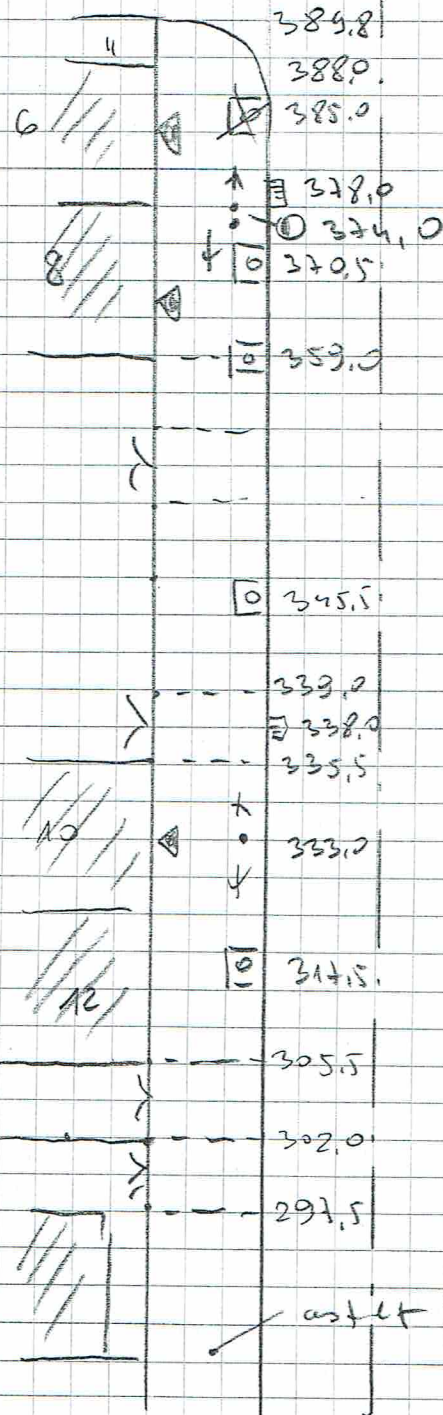 389,8
11
388,0
6
385,0
378,0
374,0
8
370,5
359,0
345,5
339,0
338,0
335,5
10
333,0
317,5
12
305,5
302,0
297,5